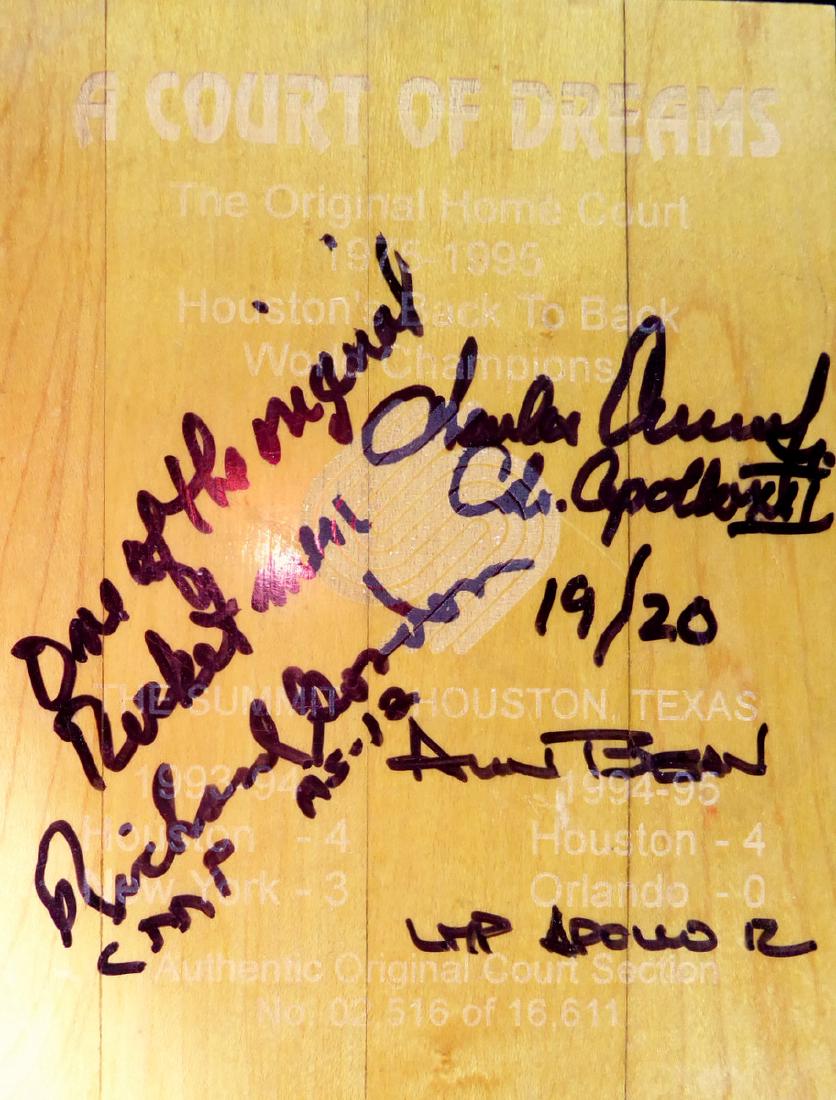 A COURT OF DREAMS
The Original Home Court
1975-1995
Houston's Back To Back
World Champions
One of the original
Rocket men
Richard Gordon
CMP AS-12
Charles Conrad Jr.
Cdr. Apollo XII
19/20
THE SUMMIT HOUSTON, TEXAS
Alan Bean
LMP APOLLO 12
1993-94
Houston - 4
New York - 3
1994-95
Houston - 4
Orlando - 0
Authentic Original Court Section
No. 02,516 of 16,611